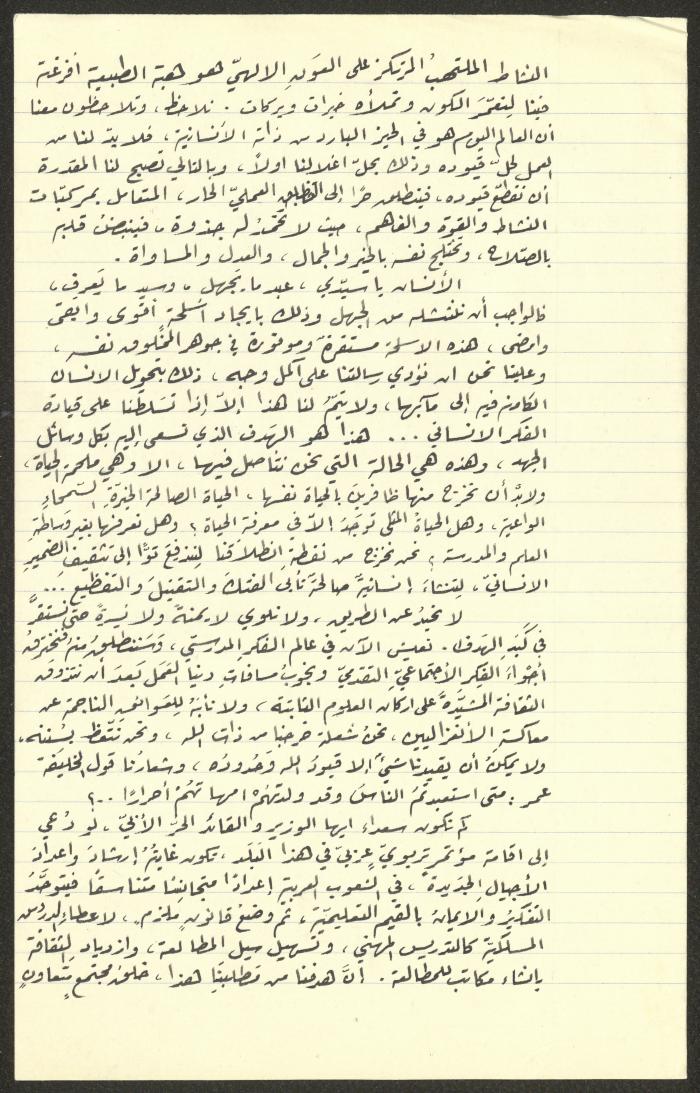 النشاط الملتهبُ المرتكز على العَوَنِ الالهيّ هو هبة الطبيعة أفرغته
فينا لِتعمّرَ الكون وتملأه خيرات وبركات . نلاحظ ، وتلاحظون معنا
أن العالم اليوم هو في الحيز البارد من ذاته الأنسانية ، فلا بدّ لنا من
العمل لحلّ قيوده وذلك بحلّ اغلالنا اولاً ، وبالتالي تصبح لنا المقدرة
أن نقطّع قيوده ، فينطلق حرًا إلى العمليّ الحار ، المتفاعل بمركبّات
النشاط والقوة والتفاهم ، حيث لا تخمدُ له جذوة ، فينبضُ قلبه
بالصّلاح ، وتختلج نفسه بالخير والجمال ، والعدل والمساواة .
الأنسان يا سيّدي ، عبد ما يَجهل ، وسيد ما يَعرف ،
فالواجب أن ننتشله من الجهل وذلك بايجاد أسلحة أقوى وابقى
وامضى ، هذه الاسلحة مستقرة وموفورة في جوهر المخلوق نفسه ،
وعلينا نحن ان نؤدي رسالتنا على اكمل وجه ، ذلك بتحويل الانسان
الكامن فيه إلى مآتيها ، ولا يتمّ لنا هذا إلاّ إذا تسَلطّنا على قيادة
الفكر الانساني ... هذا هو الهَدف الذي نسعى إليه بكل وسائل
الجهد ، وهذه هي الحالة التي نحن نناضل فيها ، الا وهي ملحمة الحياة ،
ولا بدَّ أن نخرج منها ظافرين بالحياة نفسها ، الحياة الصالحة الخيّرةِ السّمحاءِ
الواعية ، وهل الحياةُ المثلى توجَدُ إلاّ في معرفة الحياة ؟ وهل نعرفها بغير وَساطةِ
العلم والمدرسة ؟ نحن نخرج من نقطة انطلاقنا لِنندفعَ توًّا إلى تثقيف الضميرِ
الانسانيّ ، لتنشاءَ إنسانيةٌ صالحةٌ تأبى الفتك والتقتيلَ والتفظيع ...
لا نحيدُ عن الطريق ، ولا نلوي لا يمنةً ولا يَسرةً حتى نستقرَّ
في كَبِدِ الهَدف . نعيش الآن في عالم الفكرِ المدرسيّ ، وَسَننطلقُ منه فنخترقُ
أجواءَ الفكرِ الأجتماعيّ التقدّميّ ونجوبُ مسافاتِ دنيا العَمَل بَعدَ أن نتذوّقَ
الثقافة المشيّدةَ على اركان العلوم الثابتة ، ولا نأبَهُ لِلعَوائقِ الناجمة عن
معاكسةِ الأنعزاليين ، نحن شعلة خرجنا من ذات الله ، ونحن نتّعظ بسُننه ،
ولا يمكنُ أن يقيدنا شيئٌ إلا قيودُ الله وَحدودُه ، وشعارُنا قول الخليفة
عمر : متى استعبدتُمُ الناسَ وقد ولدتهُمْ امهاتهُمْ أحرارًا .. ؟
كم نكون سعداءَ ايها الوزير والقائد الحرّ الأبيّ ، لو دُعي
إلى اقامة مؤتمر تربويّ عربيّ في هذا البَلَد ، تكون غايتُهُ إرشادَ واعدادَ
الأجيالِ الجَديدة ، في الشعوب العربيةِ إعدادًا متجانِسًا متناسقًا فيتوحَّدُ
التفكيرُ والايمانُ بالقيم التعليميّة ، ثم وضعَ قانونٍ ملزمٍ ، لاعطاءِ الدروس
المسلكيّة كالتدريس المهني ، وتسهيل سبل المطالعة ، وازدياد الثقافة
بانشاء مكاتب للمطالعة . انَّ هدفنا من مَطلبنا هذا ، خلقُ مجتمعٍ متعاونٍ